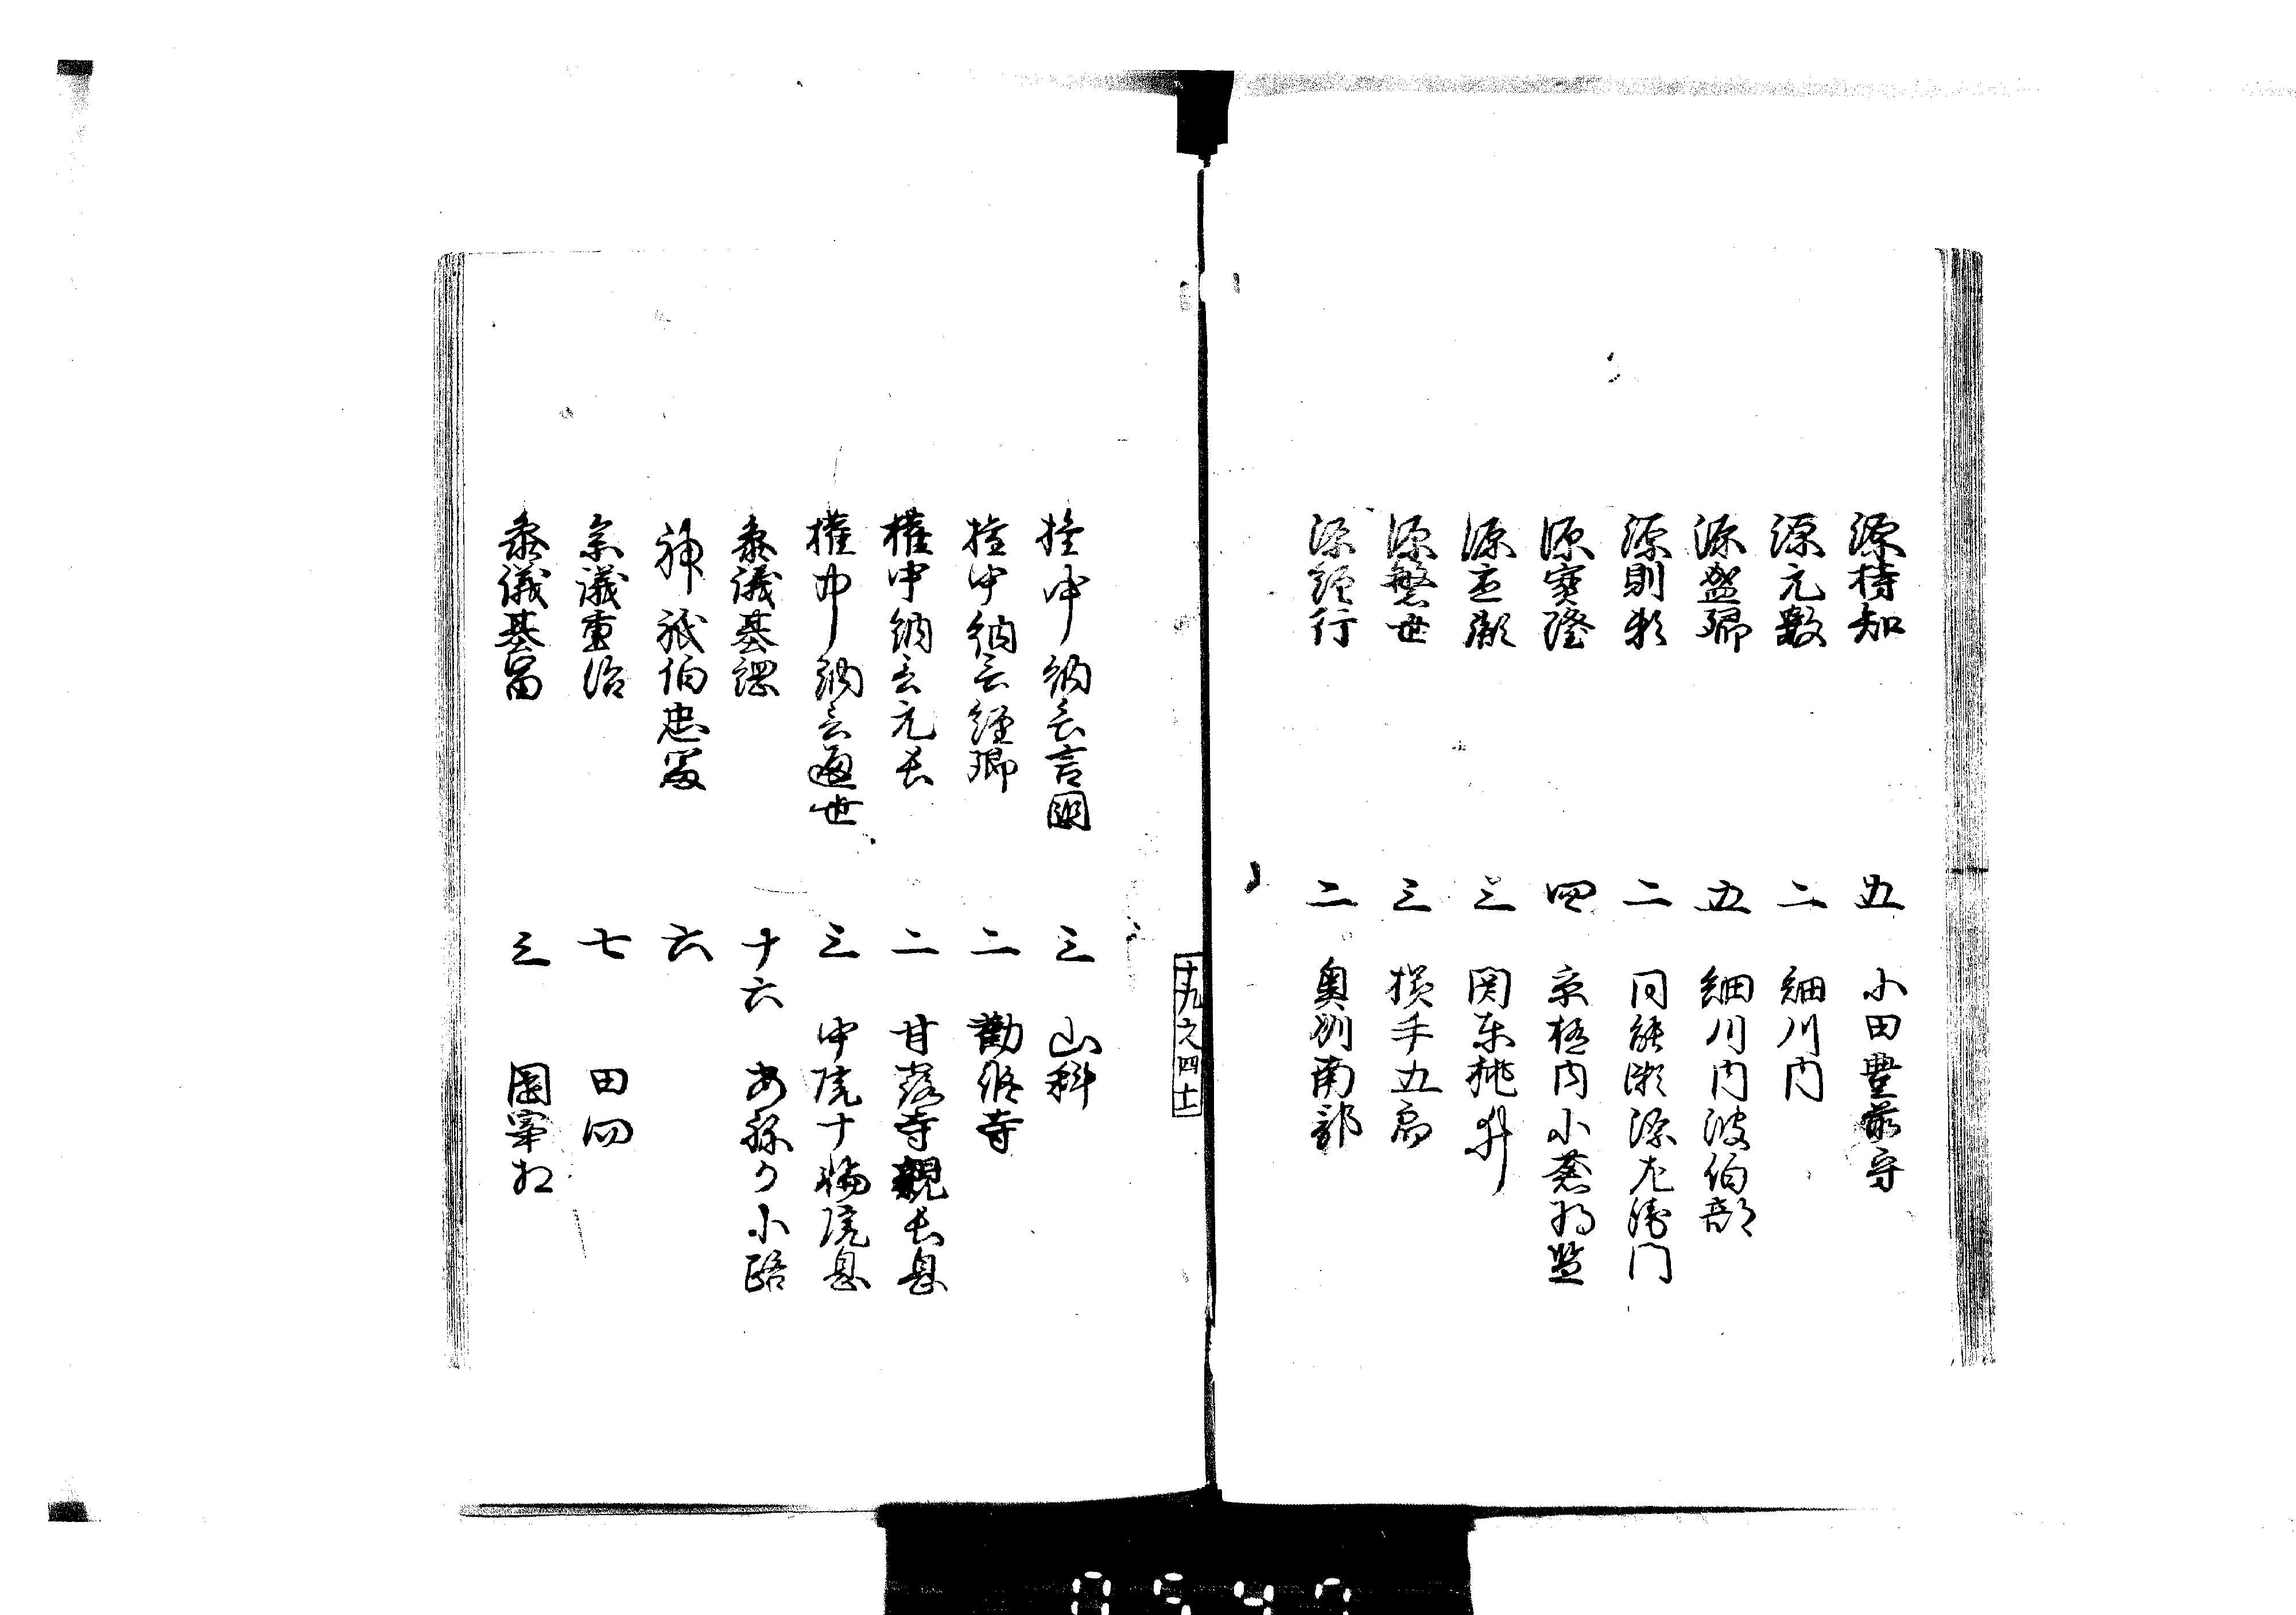 源持知 五 小田豊前守
源元数 二 細川内
源盛卿 五 細川内波伯部
源則秋 二 同能勢源左衛門
源実隆 四 京極内小蒼将監
源高 三 関東桃井
源繁世 三 横手五郎
源頼行 二 奥州南部
十九之四十
権中納言言国 三 山科
権中納言経郷 二 勧修寺
権中納言元長 二 甘露寺親長息
権中納言通世 三 中院十輪院息
参議基綱 十六 あねか小路
神祇伯忠富 六
参議重治 七 田向
参議基富 三 園宰相